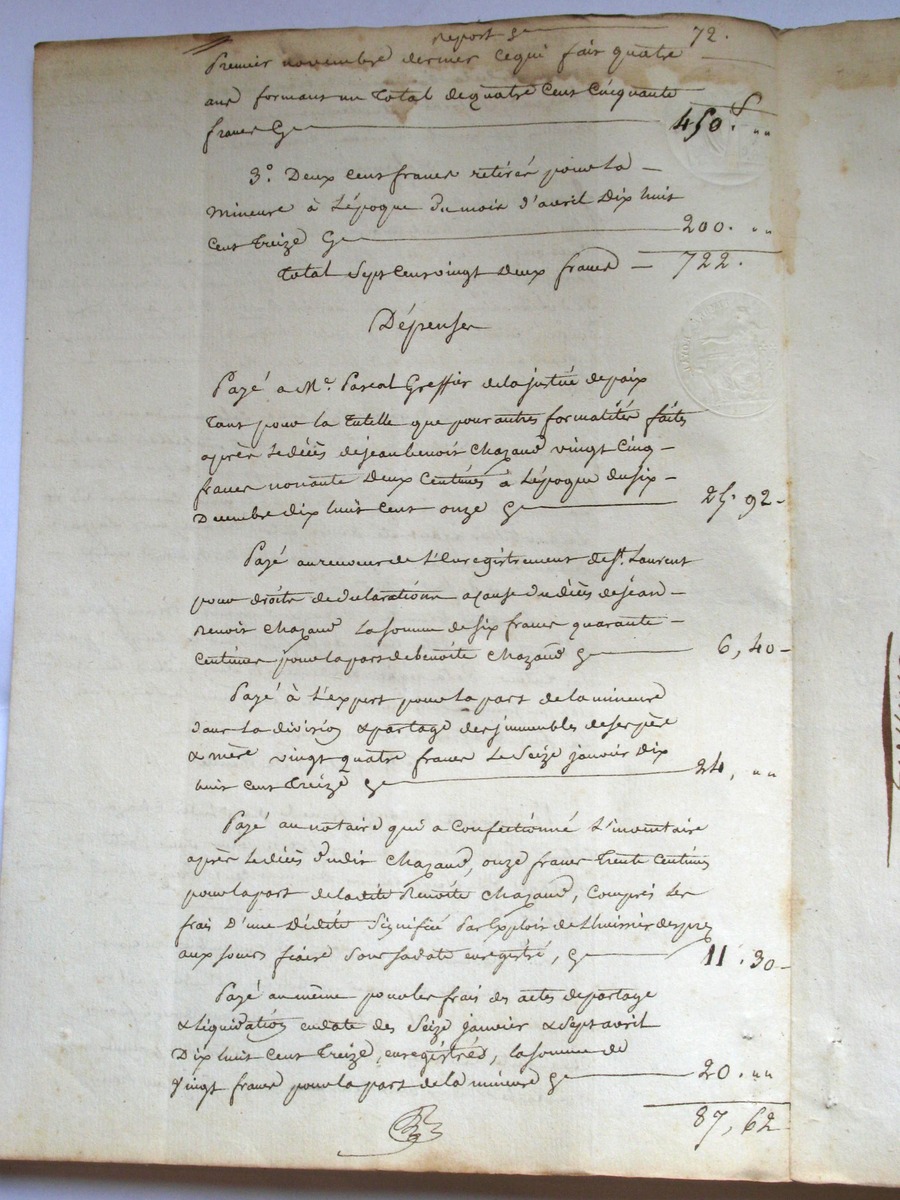 Report Ge 72.
Premier novembre dernier cequi fait quatre
ans formant un total de quatre Cent Cinquante
francs Ge 450.f ""
3.° Deux cent francs retirés pour La
mineure à L'époque du mois d'avril Dix huit
Cent Treize Ge 200. ""
Total Sept Cent vingt Deux francs 722.
Dépenses
Payé a Me. Pascal Greffier de la justice de paix
Tant pour la Tutelle que pour autres formalités faites
après Le décès de jean benoit Chazaud vingt Cinq
francs nonante Deux Centimes à L'époque du six
Decembre Dix huit Cent onze Ge 25. 92
Payé au receveur de L'Enregistrement de St. Laurent
pour droits de declarations a cause du décès de jean
Benoit Chazaud La somme de six francs quarante
Centimes pour la part de benoite Chazaud Ge 6, 40
Payé à L'expert pour La part de la mineure
dans La division & partage des jmmeubles de ses père
& mère vingt quatre francs Le Seize janvier Dix
huit Cent Treize Ge 24, ""
Payé au notaire qui a Confectionné L'inventaire
après Le décès dudit Chazaud, onze francs Trente Centimes
pour la part de ladite Benoite Chazaud, Compris Les
frais D'une Dédite Signifiée Par Exploit de L'huissier desprez
aux sous sa date enregistré, Ge 11. 30
Payé au même pour les frais des actes de partage
& Liquidation en date des Seize janvier & Sept avril
Dix huit Cent Treize, enregistrés, la somme de
Vingt francs pour la part de la mineure Ge 20. ""
87, 62